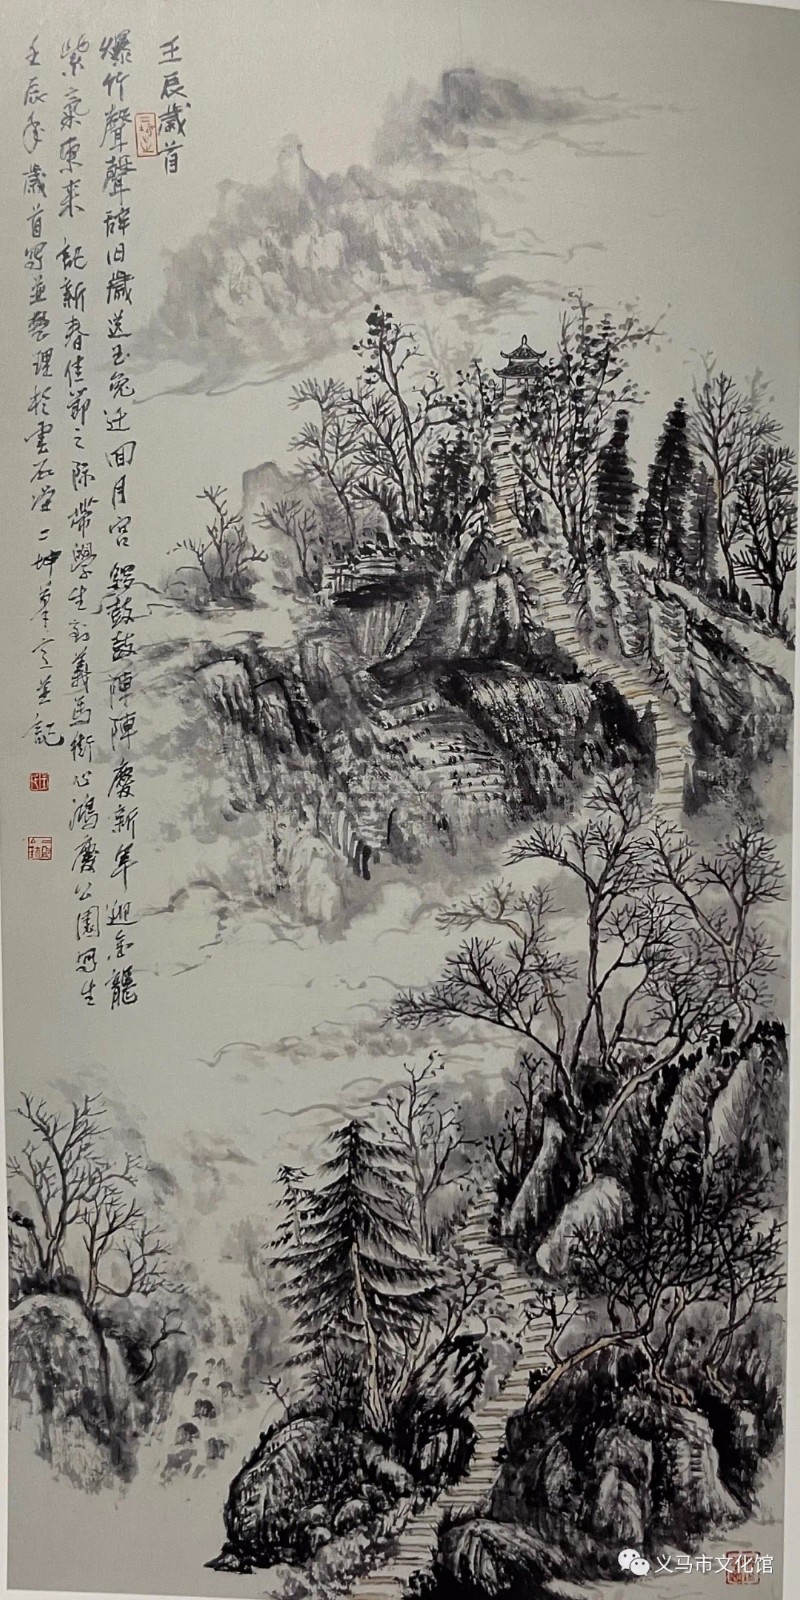 壬辰歲首
爆竹聲聲辞旧歲送玉兔迁回月宫鑼鼓鼓陣陣慶新年迎金龍
紫氣東来記新春佳節之际带學生到義馬街心鴻慶公園寫生
壬辰年歲首寫並整理於雲石堂二坤草堂并記
义马市文化馆